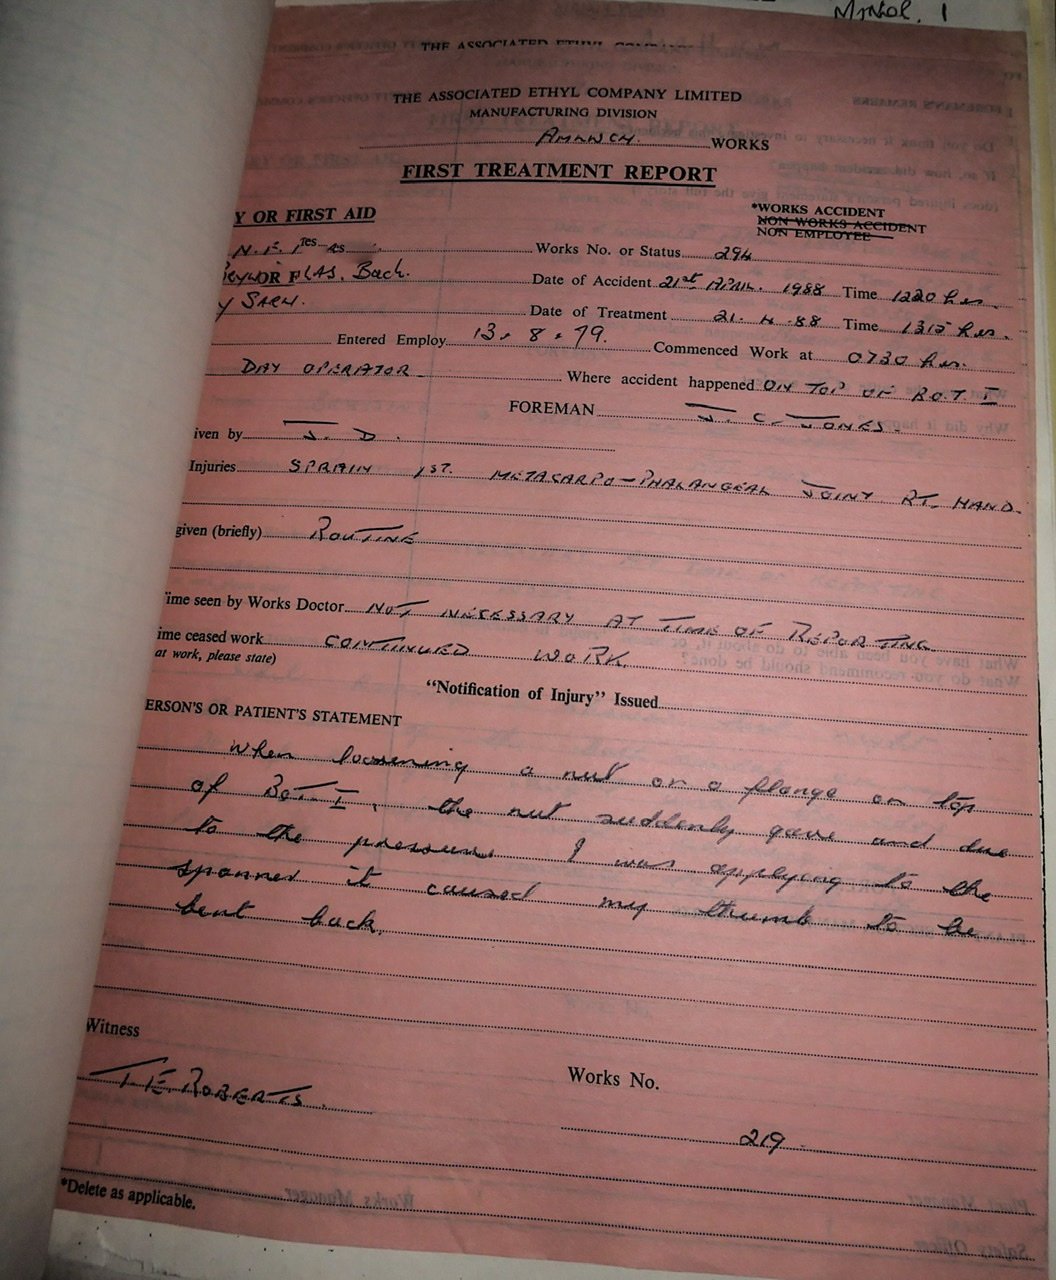 Minor. 1
THE ASSOCIATED ETHYL COMPANY
THE ASSOCIATED ETHYL COMPANY LIMITED
MANUFACTURING DIVISION
AMLWCH. WORKS
FIRST TREATMENT REPORT
Y OR FIRST AID
*WORKS ACCIDENT
NON WORKS ACCIDENT
NON EMPLOYEE
Works No. or Status 294
OR Bach. Date of Accident 21st APRIL. 1988 Time 1220 hrs.
Date of Treatment 21. 4. 88 Time 1315 hrs.
Entered Employ 13. 8. 79. Commenced Work at 0730 hrs.
DAY OPERATOR Where accident happened ON TOP OF B.O.T I
FOREMAN J. C. JONES.
iven by J. D.
Injuries SPRAIN 1ST. METACARPO-PHALANGEAL JOINT RT. HAND.
given (briefly) ROUTINE
ime seen by Works Doctor NOT NECESSARY AT TIME OF REPORTING
ime ceased work CONTINUED WORK.
at work, please state)
"Notification of Injury" Issued
ERSON'S OR PATIENT'S STATEMENT
When loosening a nut on a flange on top
of BOT I, the nut suddenly gave and due
to the pressure I was applying to the
spanner it caused my thumb to be
bent back.
Witness
T.E. ROBERTS. Works No.
219
*Delete as applicable.